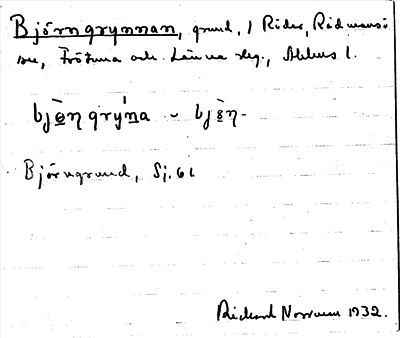 Björngrynnan, grund, 1 Räder, Rådmansö
sn, Frötuna och Länna skg., Ahlms l.
bjǫ̀ŋgrýna ~ bjǫ̀ŋ-
Björngrund, Sj. 61
Rickard Norman 1932.